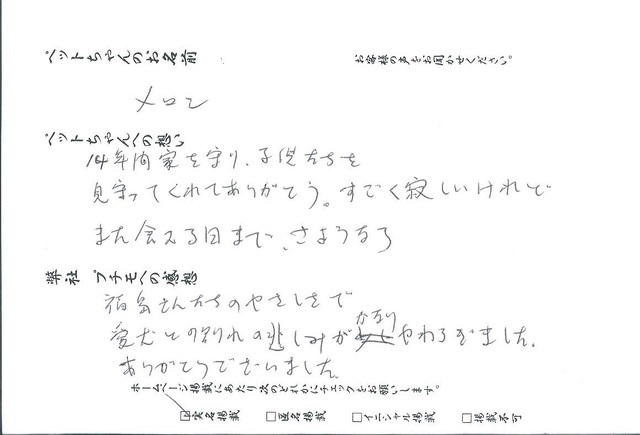 ペットちゃんのお名前
お客様の声をお聞かせください。
メロン
ペットちゃんへの想い
14年間家を守り、子供たちを
見守ってくれてありがとう。すごく寂しいけれど
また会える日まで、さようなら
弊社 プチモへの感想
さんたちのやさしさで
愛犬との別れの悲しみがかなりやわらぎました。
ありがとうございました。
ホームページ掲載にあたり次のどれかにチェックをお願いします。
□実名掲載 □匿名掲載 □イニシャル掲載 □掲載不可